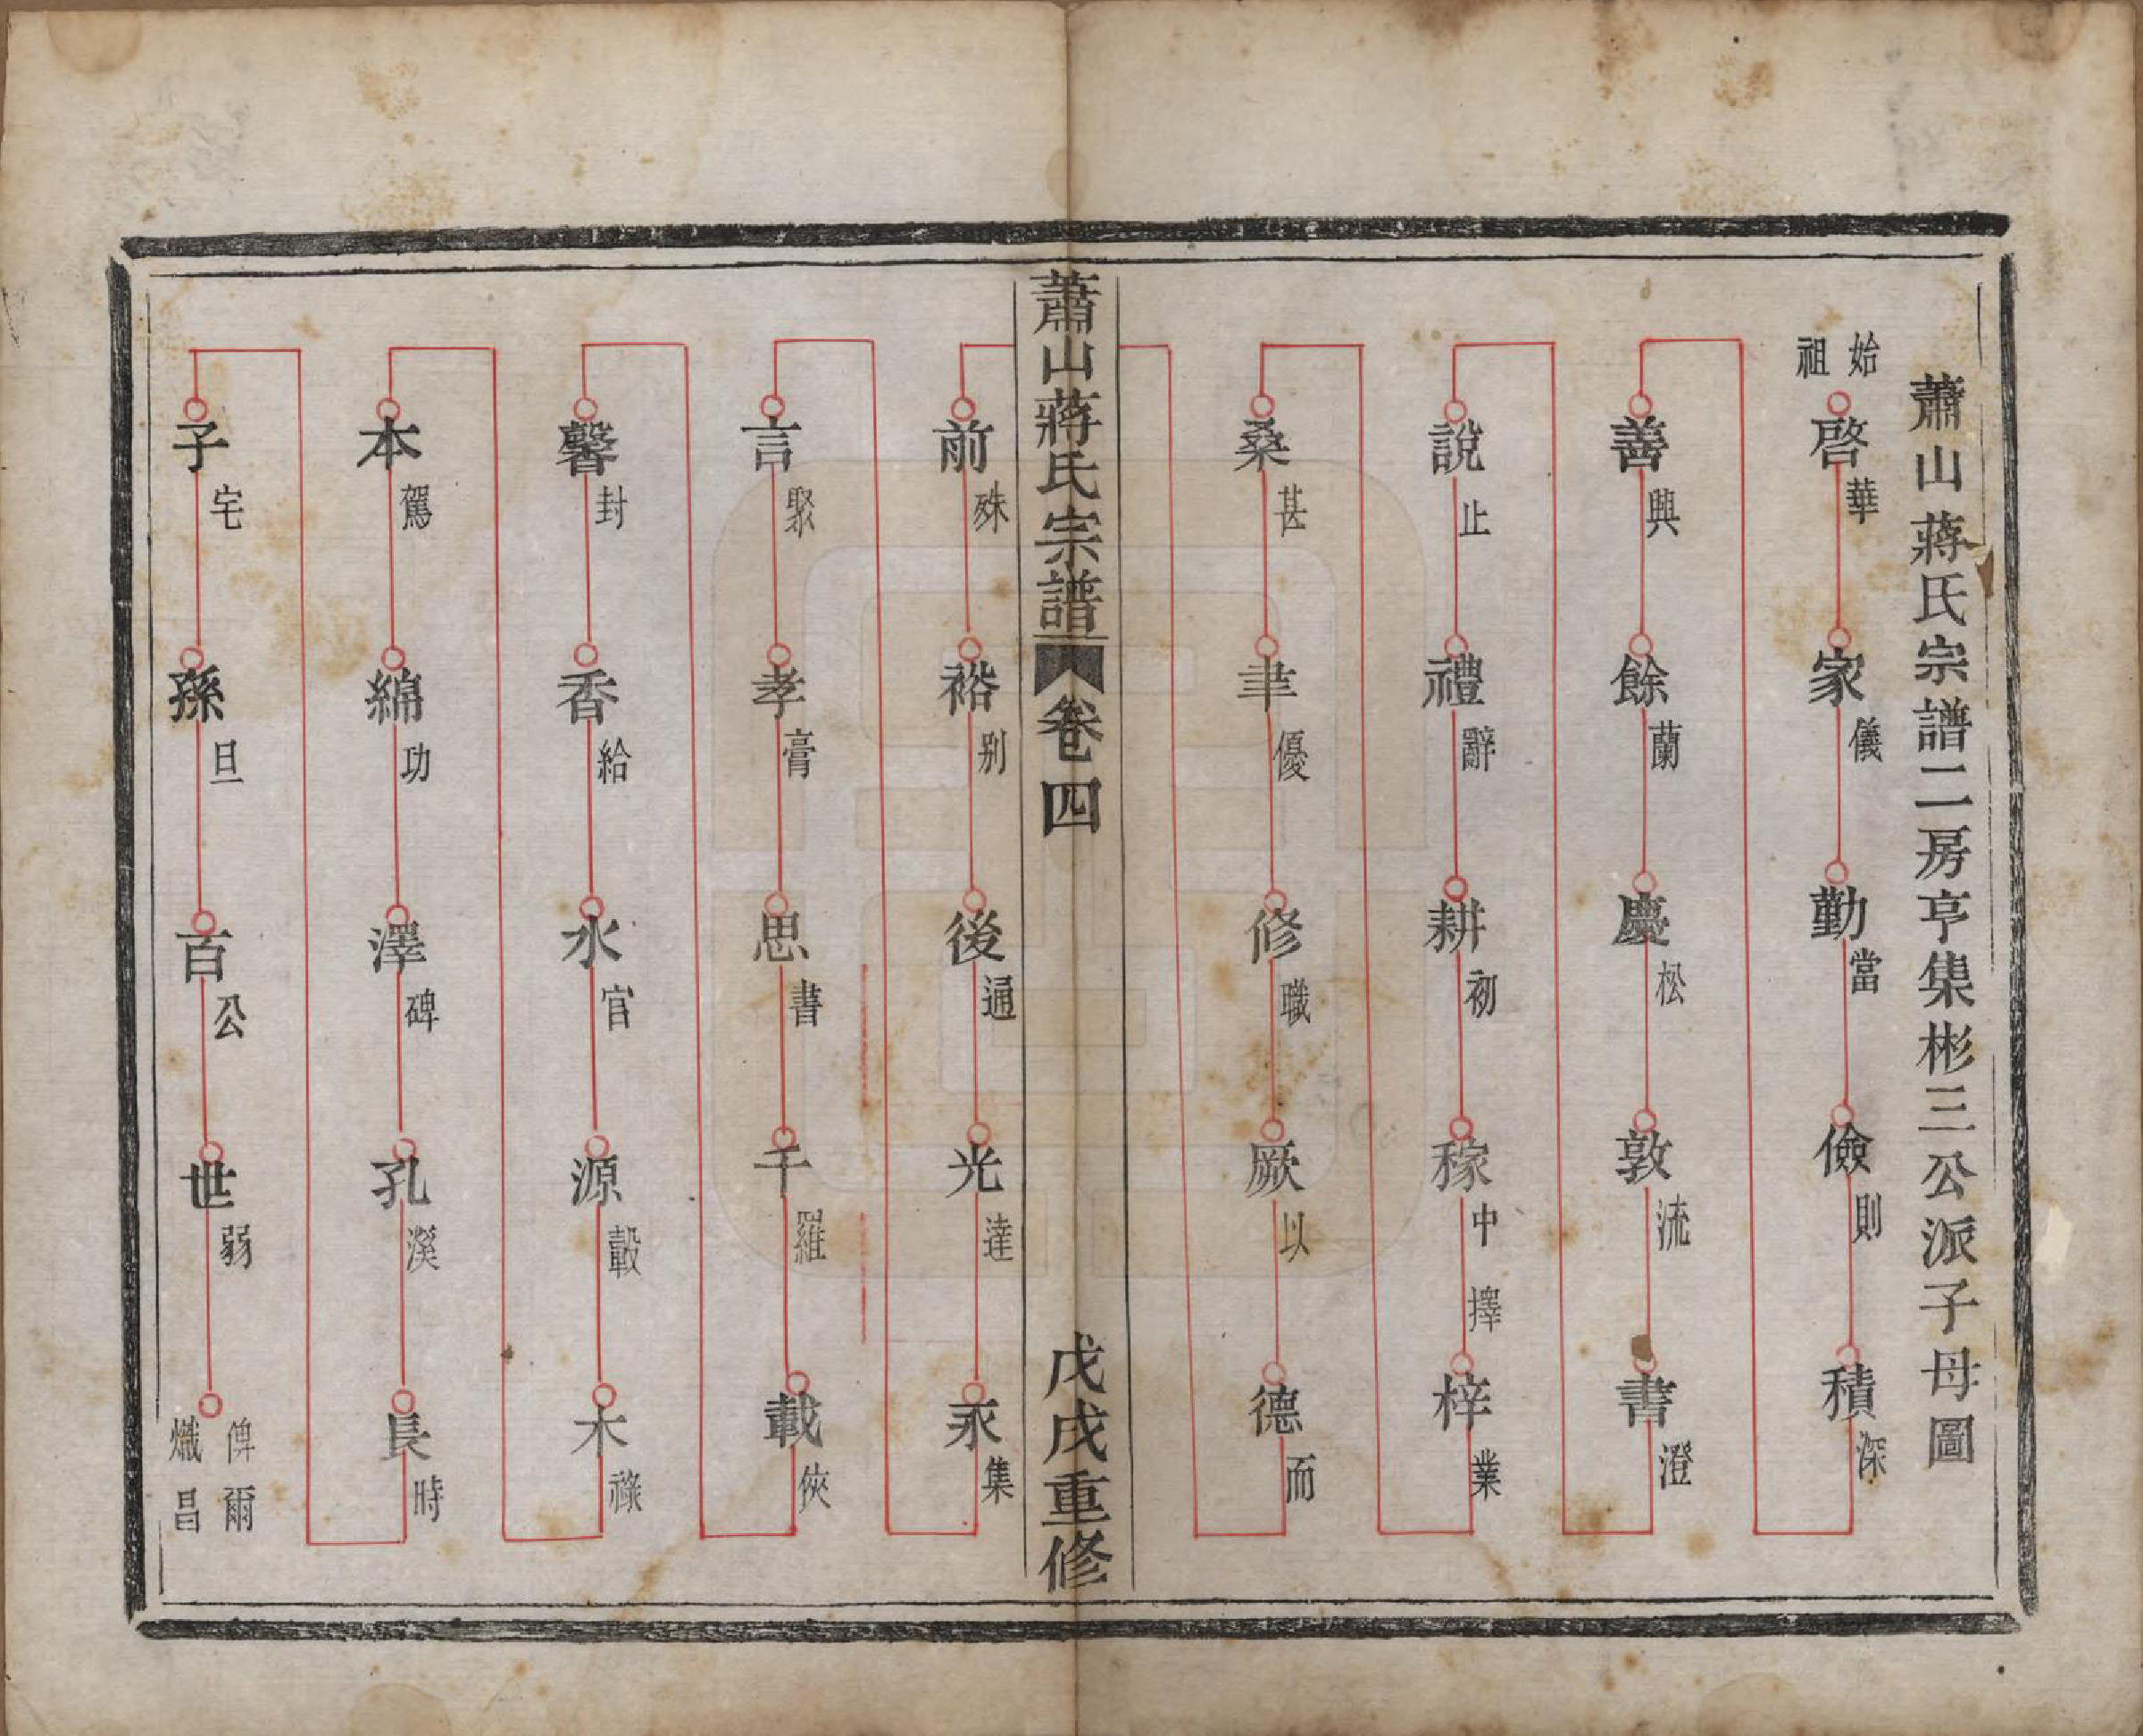 蕭山蔣氏宗譜二房亨集彬三公派子母圖
始祖
啓華家儀勤當儉則積深
善興餘蘭慶松敦流書澄
說止禮辭耕初稼中擇梓業
桑甚聿優修職厥以德而
蕭山蔣氏宗譜 卷四 戊戌重修
前殊裕別後通光達永集
言聚孝膏思書千羅載俠
馨封香給水官源轂木祿
本駕綿功澤碑孔溪長時
子宅孫旦百公世弱
俾爾
熾昌